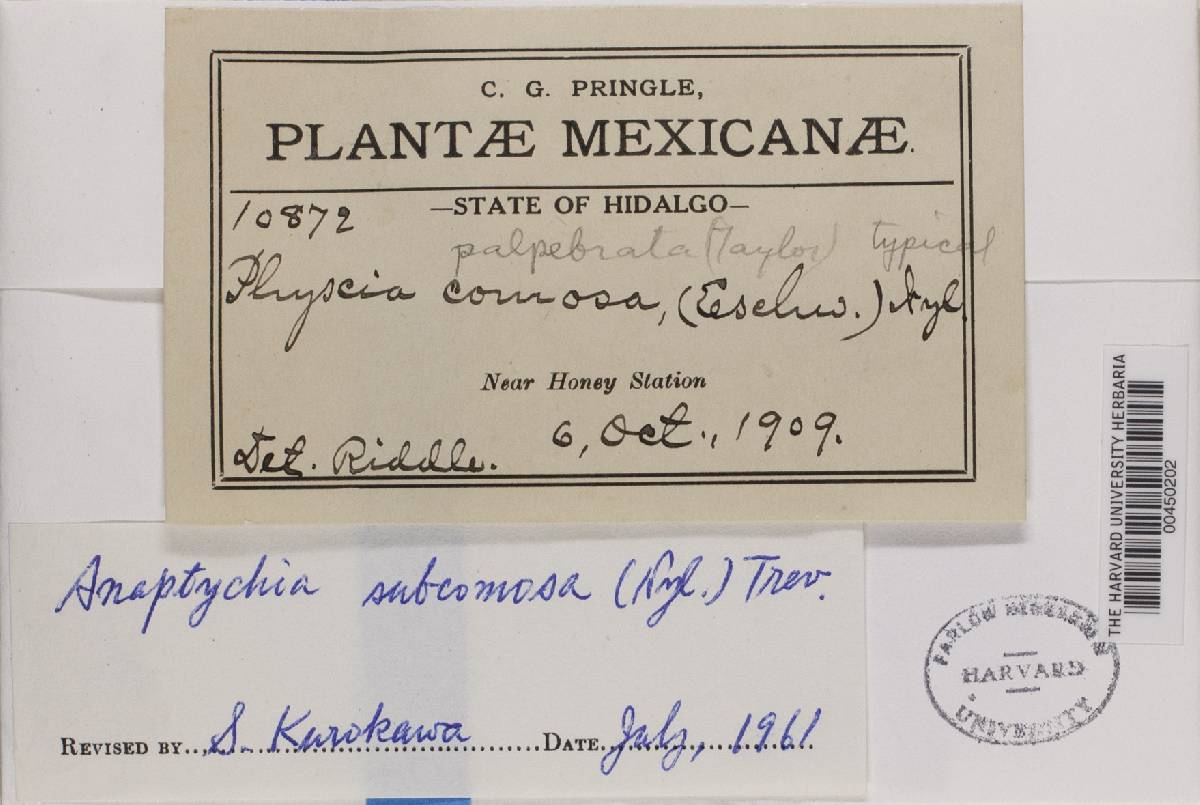 C. G. PRINGLE,
PLANTÆ MEXICANÆ.
10872 —STATE OF HIDALGO—
palpebrata (Taylor) typical
Physcia comosa, (Eschw.) Nyl.
Near Honey Station
6, Oct., 1909.
Det. Riddle.
Anaptychia subcomosa (Nyl.) Trev.
REVISED BY S. Kurokawa DATE July, 1961
FARLOW HERBARIUM
HARVARD
UNIVERSITY
THE HARVARD UNIVERSITY HERBARIA
00450202